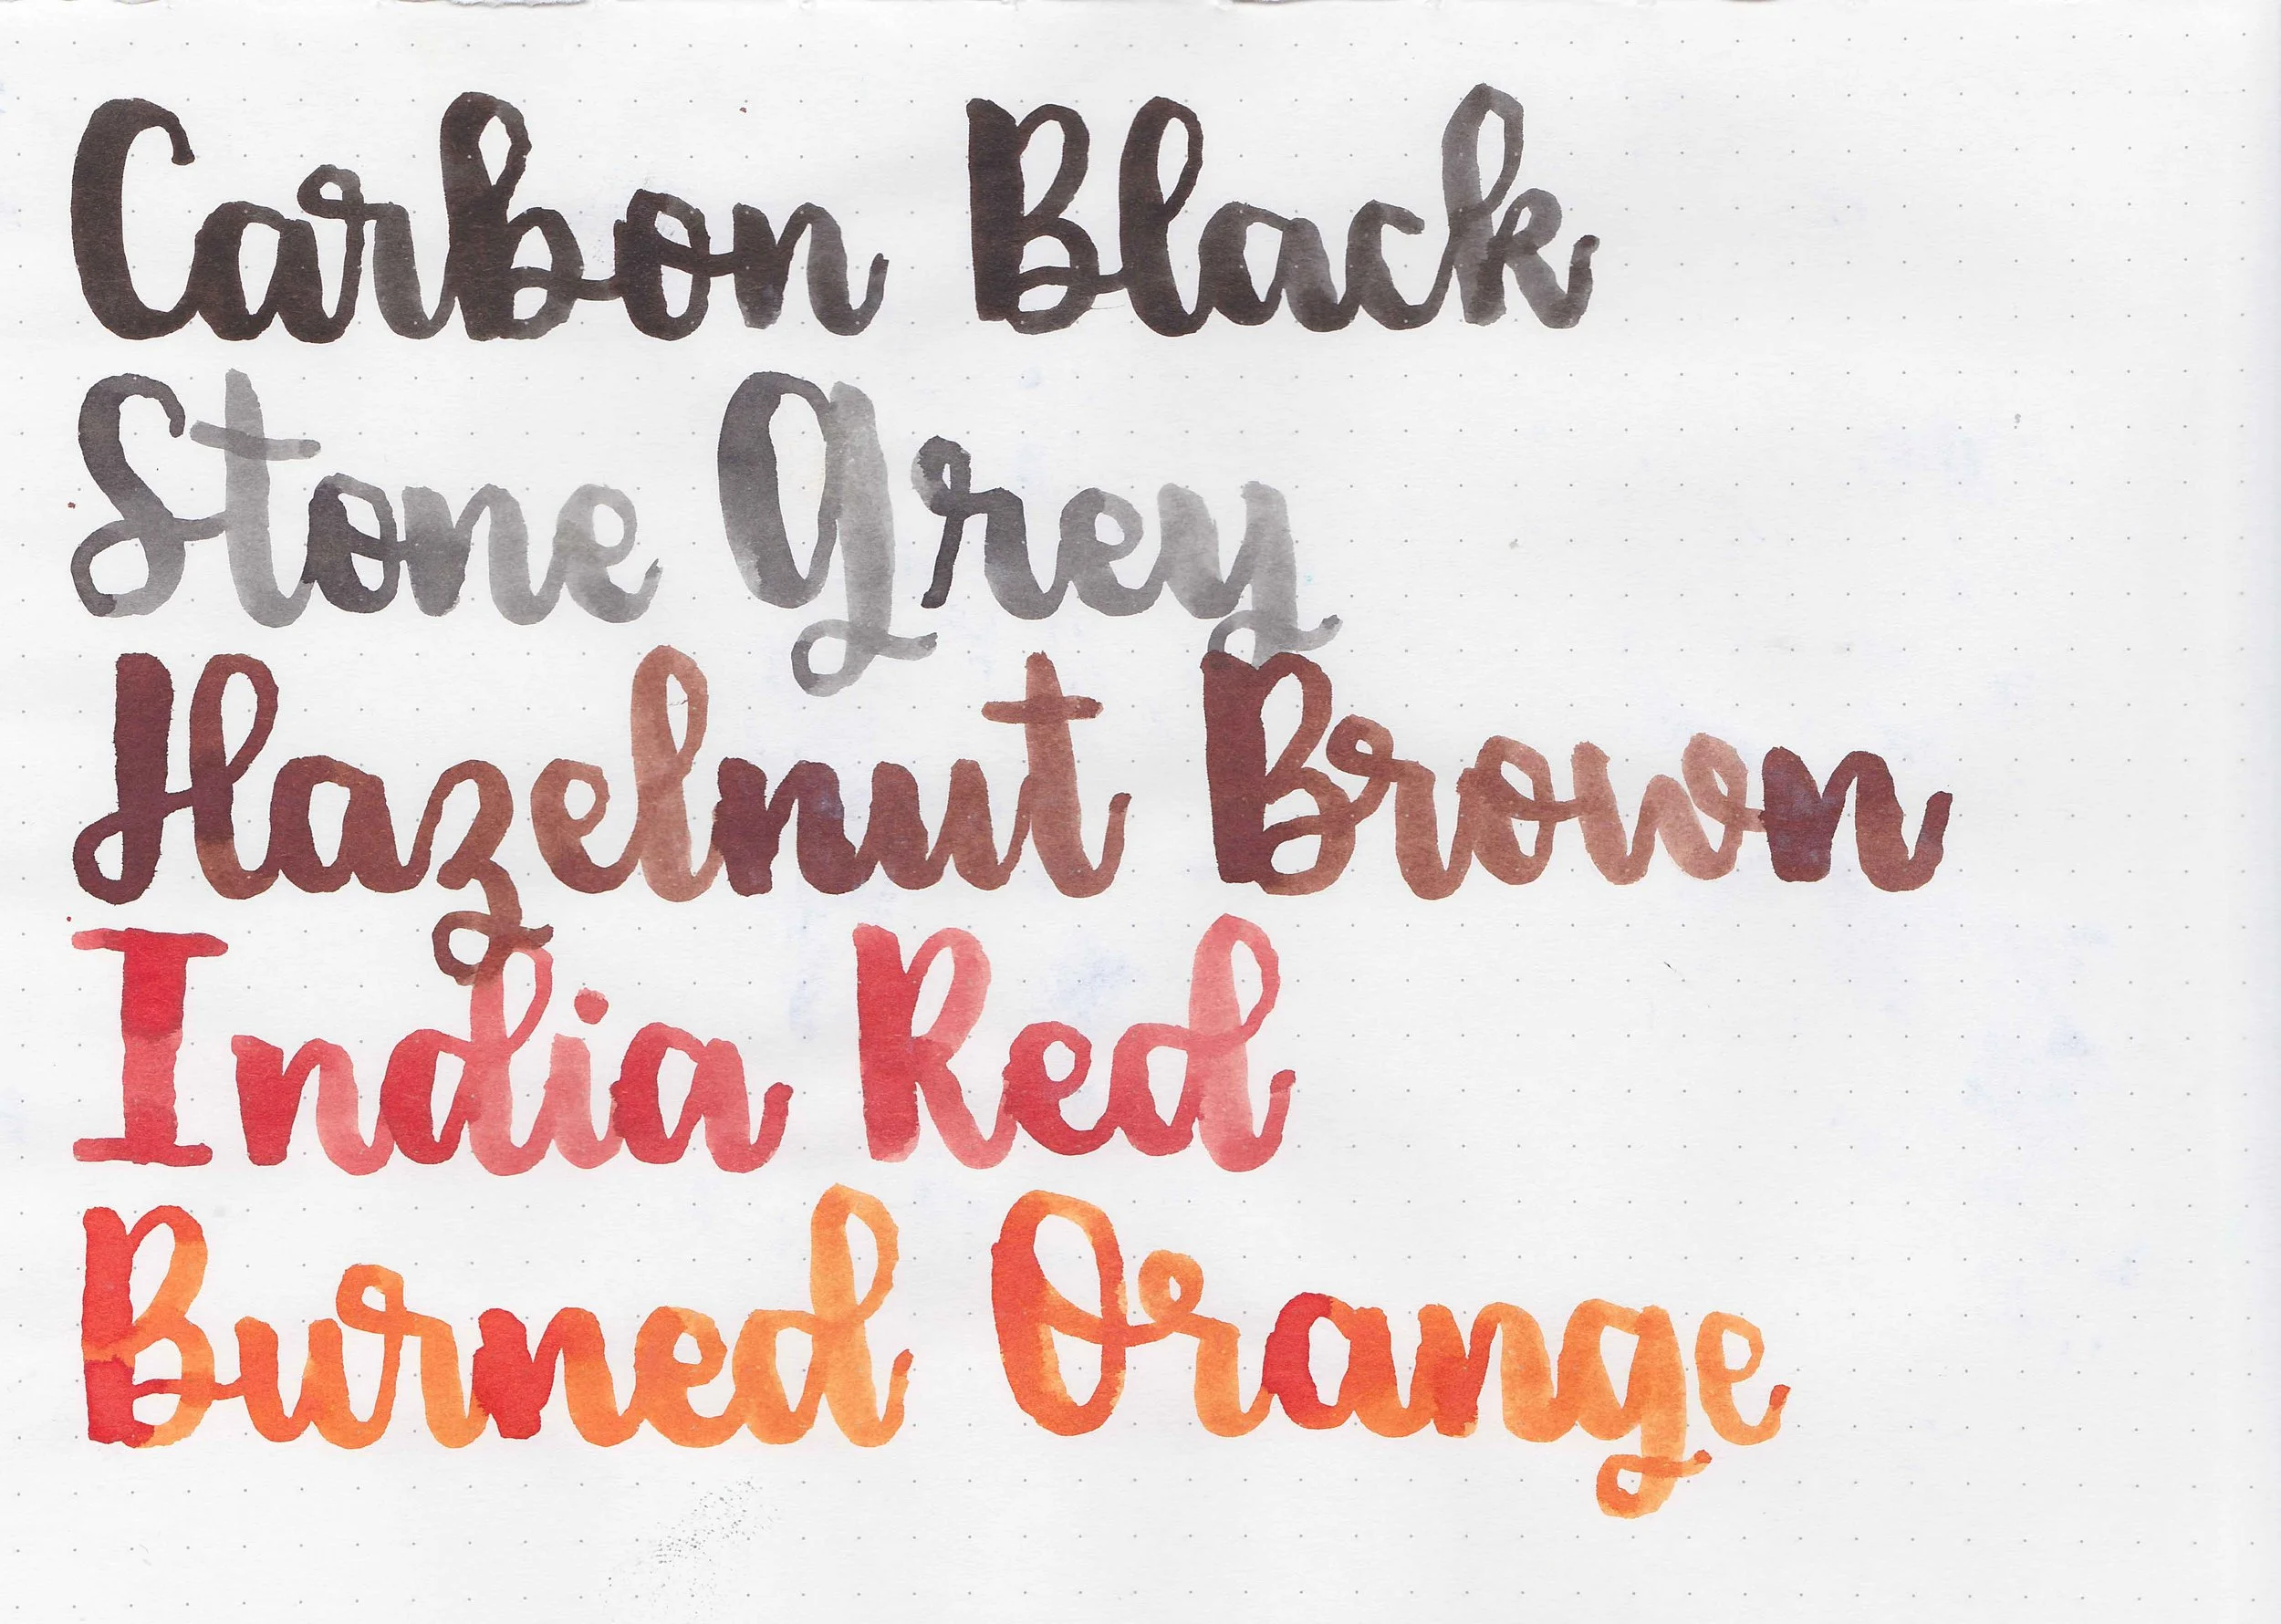 Carbon Black
Stone Grey
Hazelnut Brown
India Red
Burned Orange